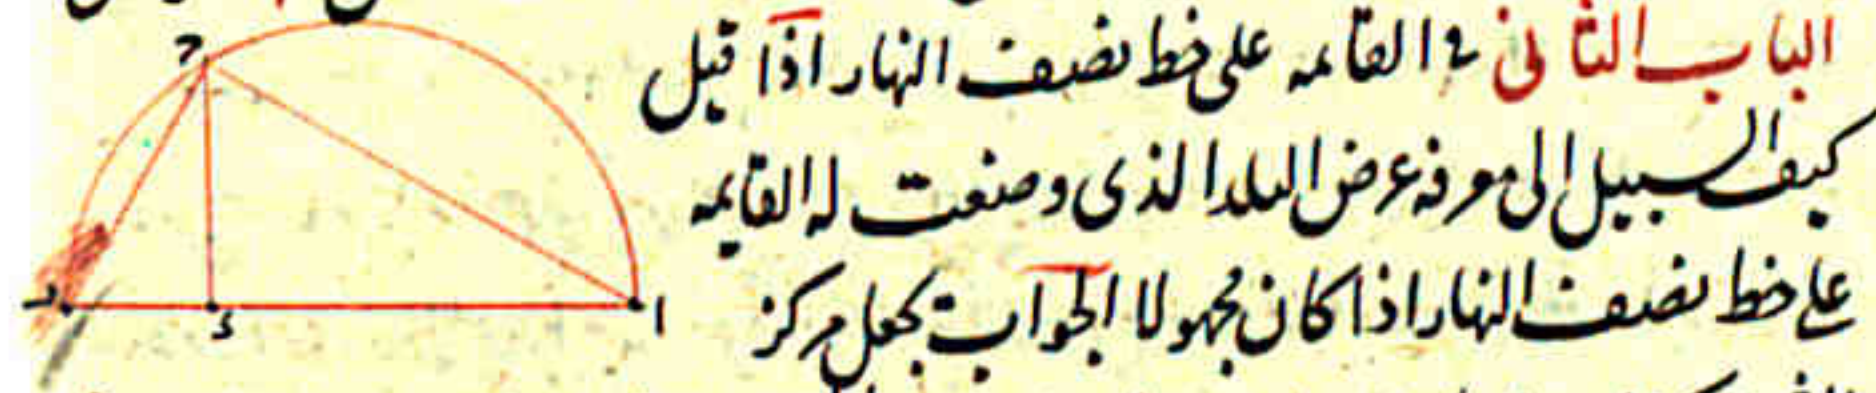 الباب الثانى فى القائمه على خط نصف النهار اذا قيل
كيف السبيل الى معرفه عرض البلد الذى وضعت له القايمه
على خط نصف النهار اذا كان مجهولا الجواب نجعل مركز
ح
ا
ء
ب